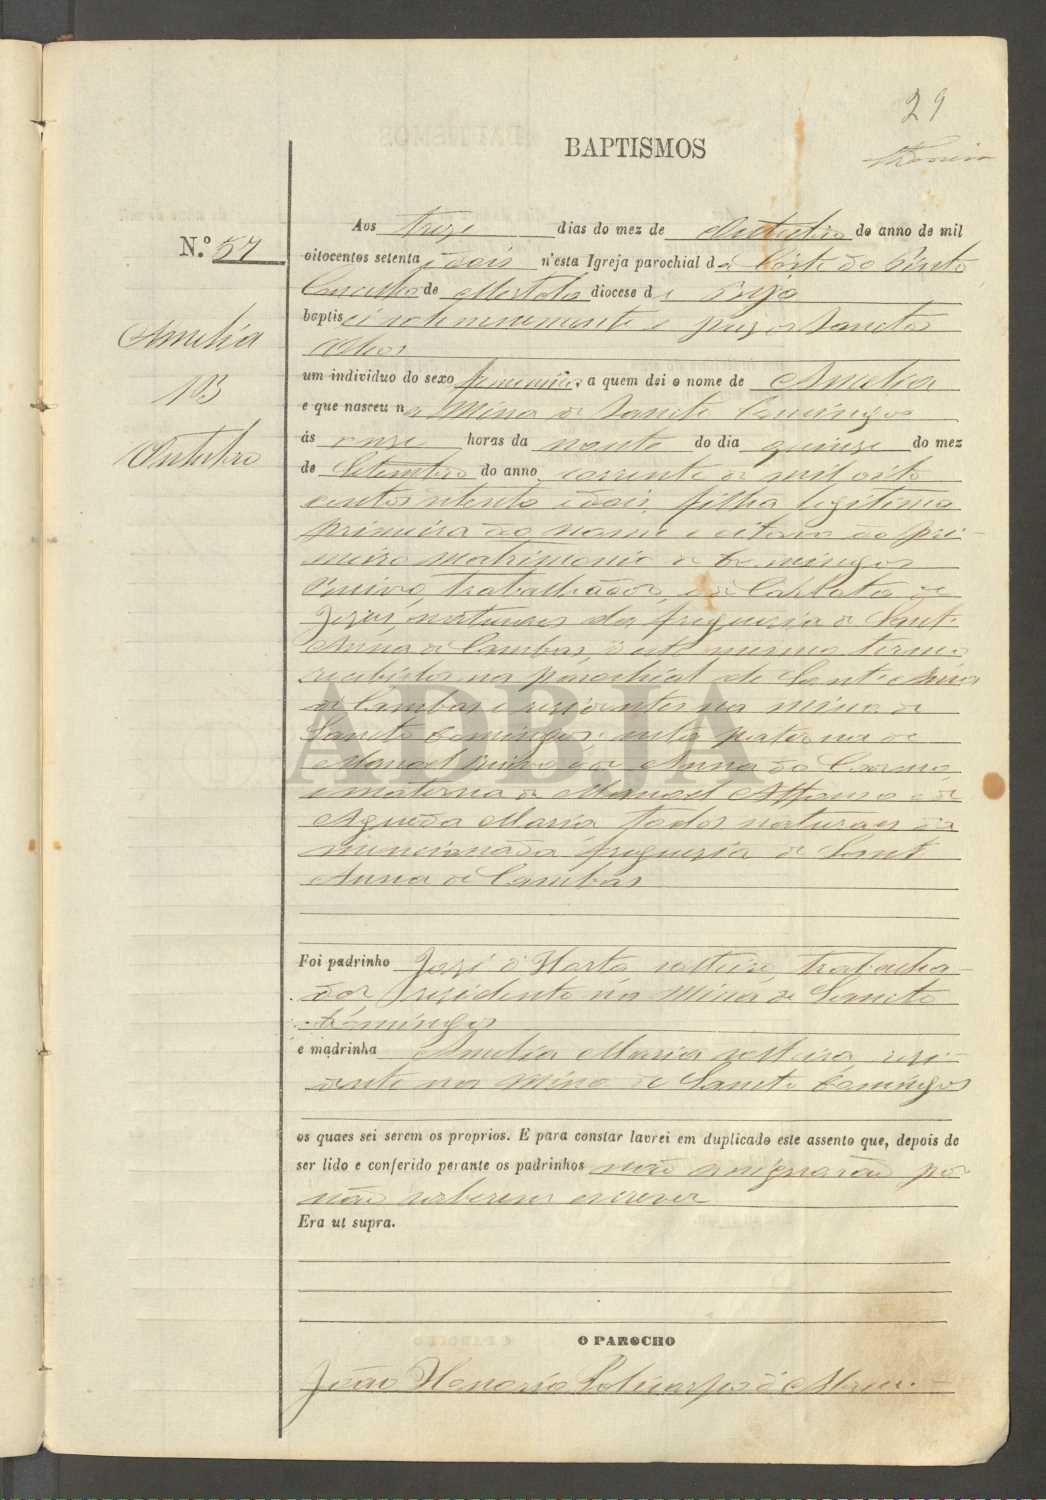 29
BAPTISMOS
N.º 57
Amelia
103
Outubro
Aos treze dias do mez de Outubro do anno de mil
oitocentos setenta e dois n'esta Igreja parochial da Côrte do Pinto
Concelho de Mertola diocese de Beja
baptisei solemnemente e puz os Sanctos
Oleos
um individuo do sexo femenino, a quem dei o nome de Amelia
e que nasceu na Mina de Sancto Domingos
ás onze horas da noute do dia quinze do mez
de Setembro do anno corrente de mil oito
centos setenta e dois, filha legitima
primeira do nome e oitava do pri-
meiro matrimonio de Domingos
trabalhador, e de Carlota de
Jezus, naturaes da freguezia de Sant
Anna de Cambas, d'este mesmo termo
recebidos na parochial de Sant Anna
de Cambas e rezidentes na Mina de
Sancto Domingos; neta paterna de
Manoel e de Anna do Carmo,
e materna de Manoel Affonso e de
Agueda Maria, todos naturaes da
mencionada freguezia de Sant
Anna de Cambas
Foi padrinho Jozé d'Horta solteiro, trabalha-
dor, rezidente na Mina de Sancto
Domingos
e madrinha Amelia Maria solteira, rezi-
dente na Mina de Sancto Domingos
os quaes sei serem os proprios. E para constar lavrei em duplicado este assento que, depois de
ser lido e conferido perante os padrinhos não assignarão por
não saberem escrever
Era ut supra.
O PAROCHO
João Honorio Policarpo d'
ADBJA